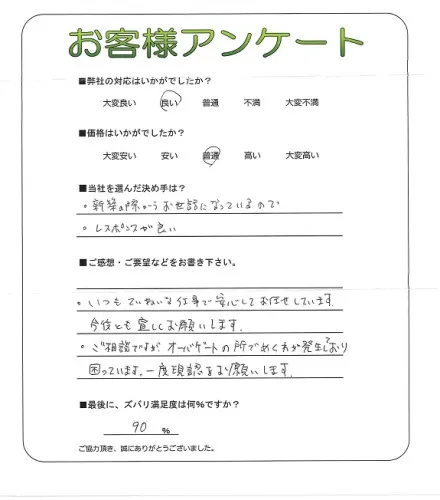 お客様アンケート
■弊社の対応はいかがでしたか?
大変良い 良い 普通 不満 大変不満
■価格はいかがでしたか?
大変安い 安い 普通 高い 大変高い
■当社を選んだ決め手は?
・新築の際からお世話になっているので
・レスポンスが良い
■ご感想・ご要望などをお書き下さい。
・いつもていねいな仕事で安心してお任せしています。
今後とも宜しくお願いします。
・ご相談ですが、オーバーゲートの所でめくれが発生しており
困っています。一度現認をお願いします。
■最後に、ズバリ満足度は何%ですか?
90 %
ご協力頂き、誠にありがとうございました。